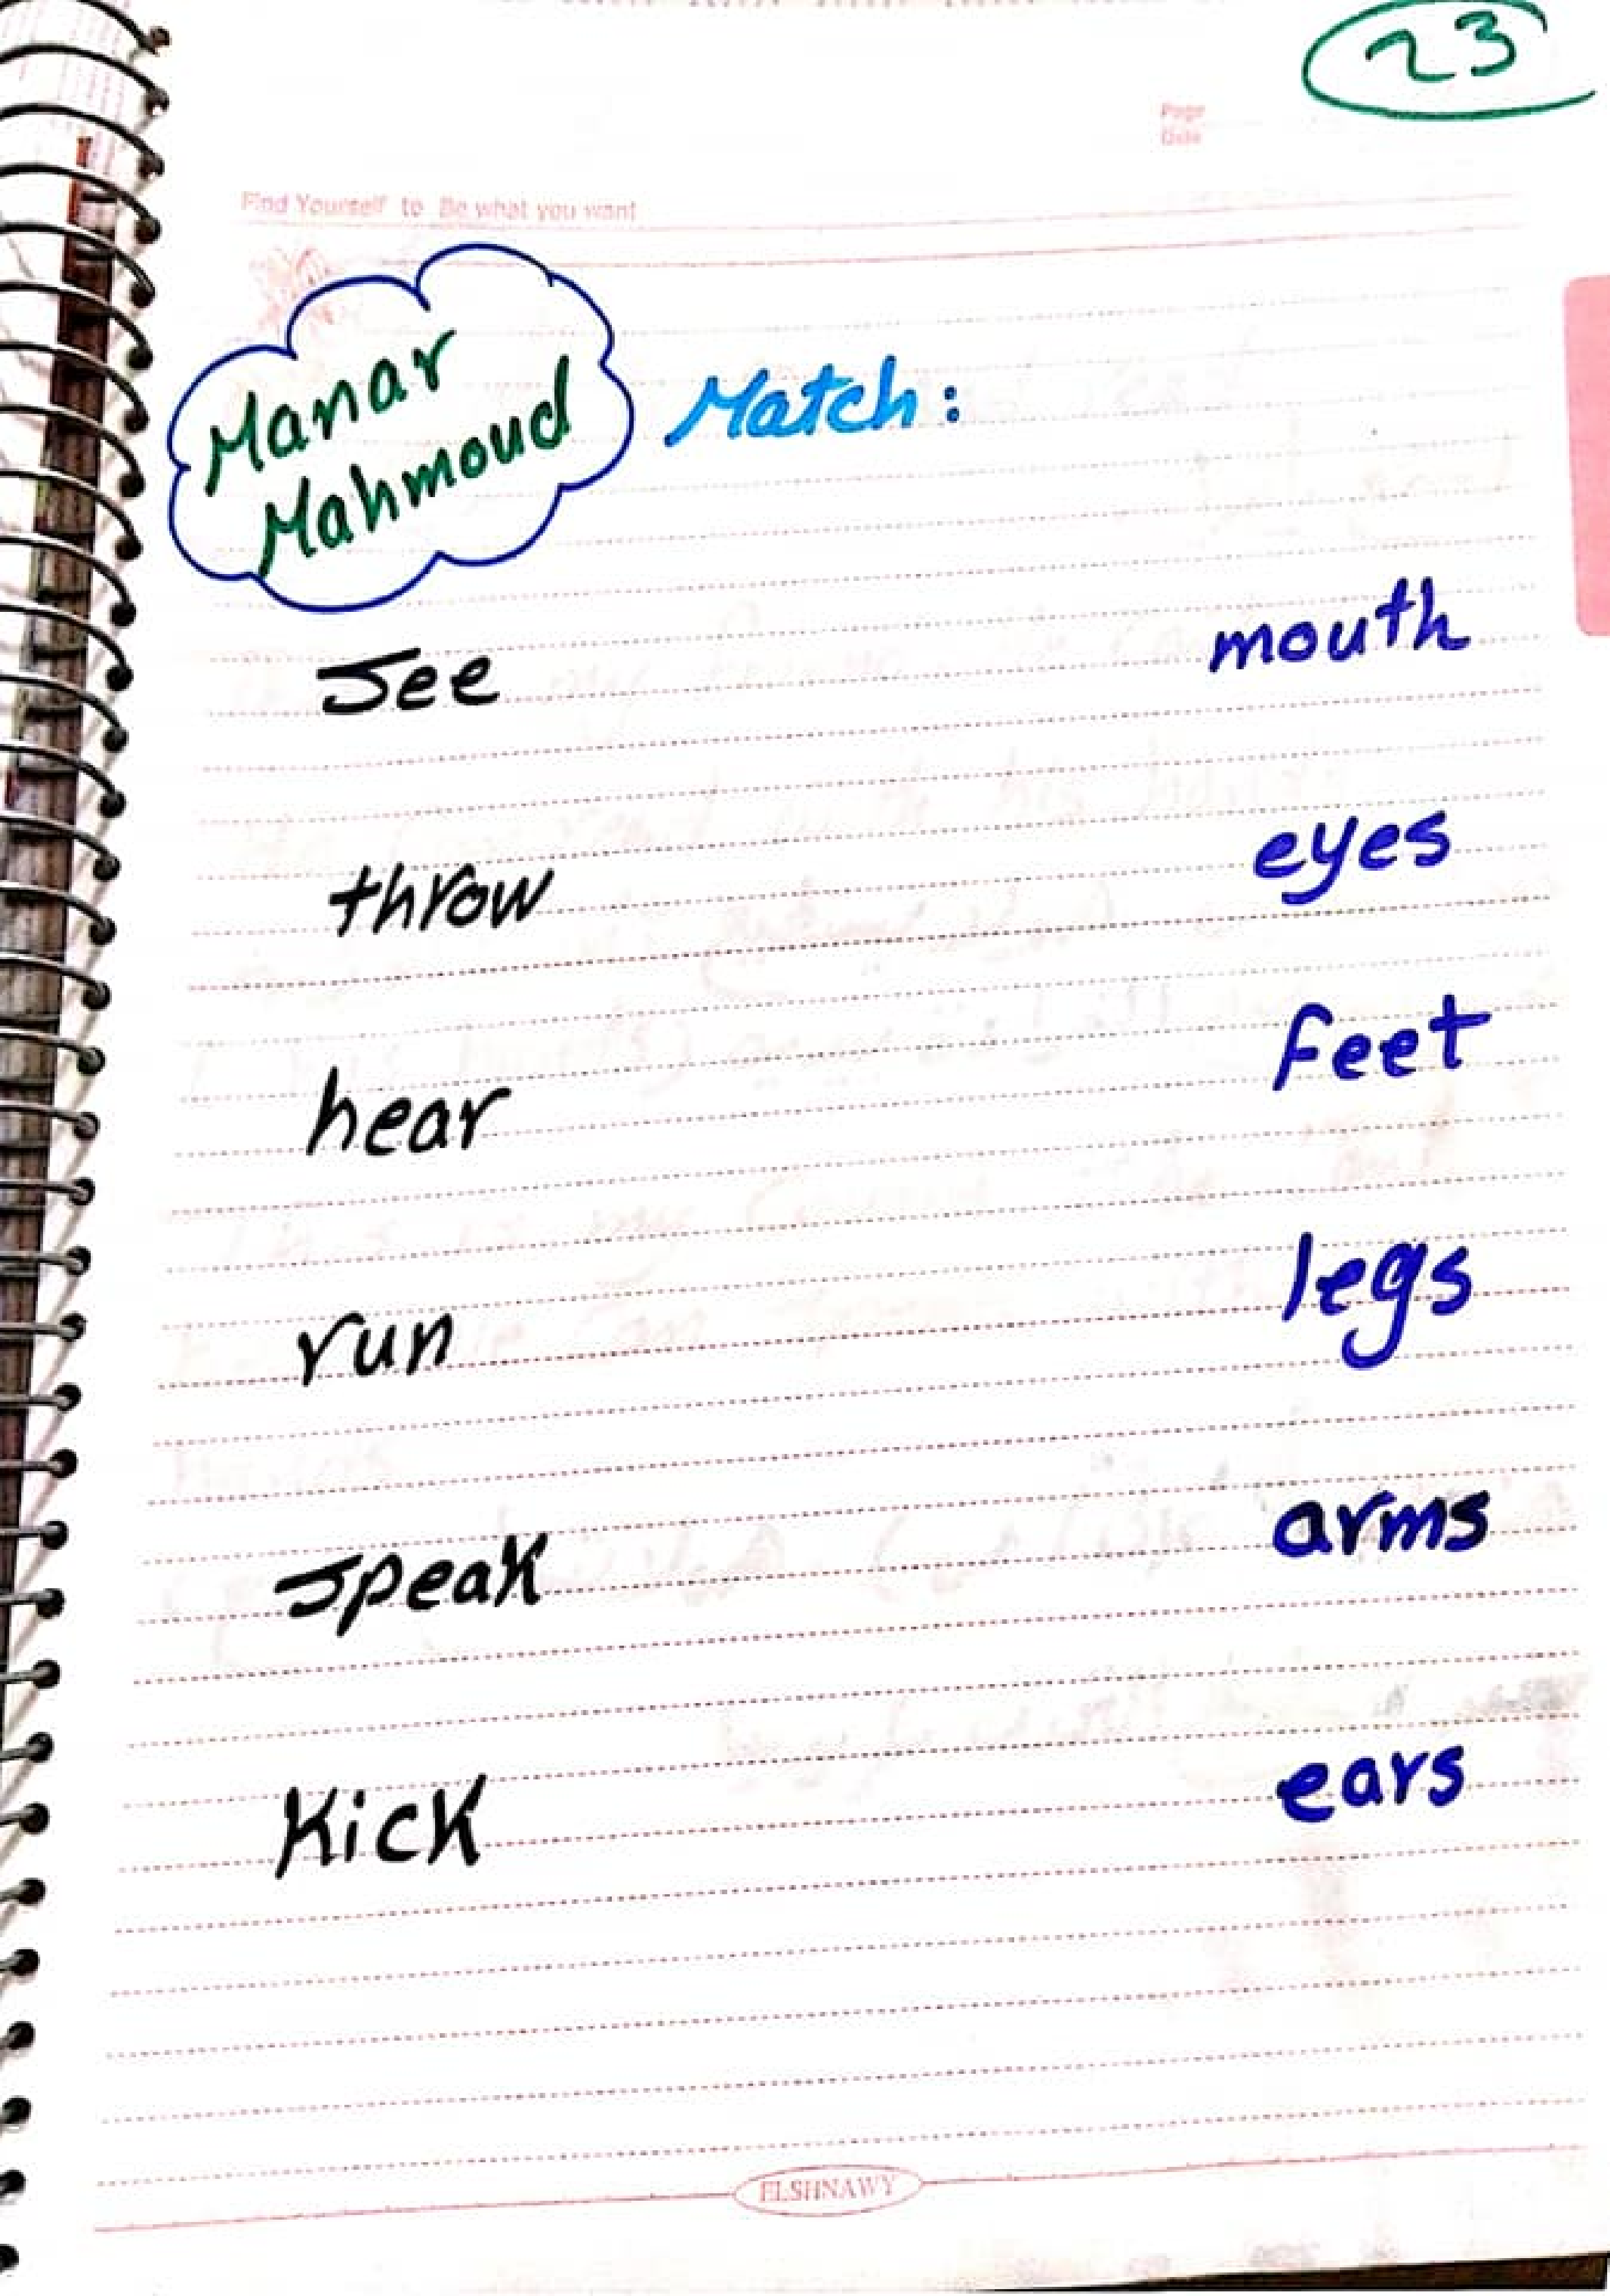 23
Page
Date
Find Yourself to Be what you want
Manar
Mahmoud
Match:
See mouth
throw eyes
hear feet
run legs
speak arms
kick ears
ELSHNAWY